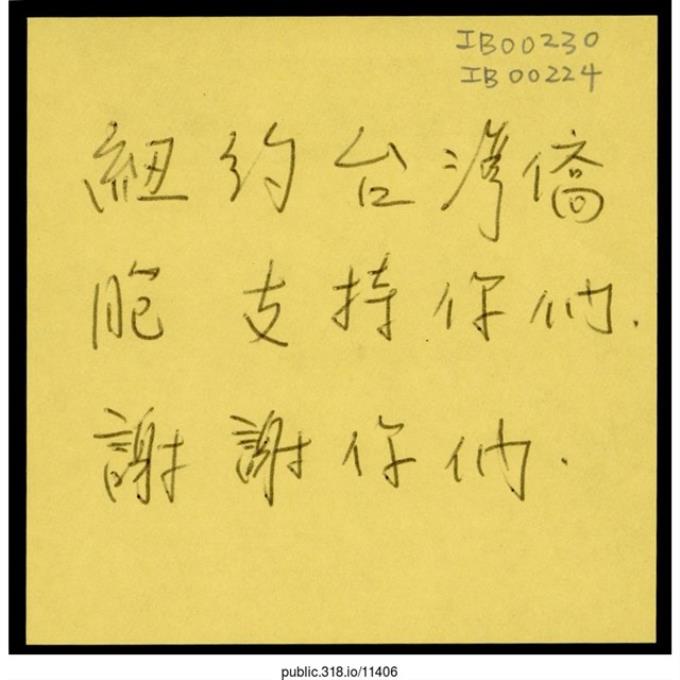 IB00230
IB00224
紐約台灣僑
胞 支持你們.
謝謝你們.
public.318.io/11406